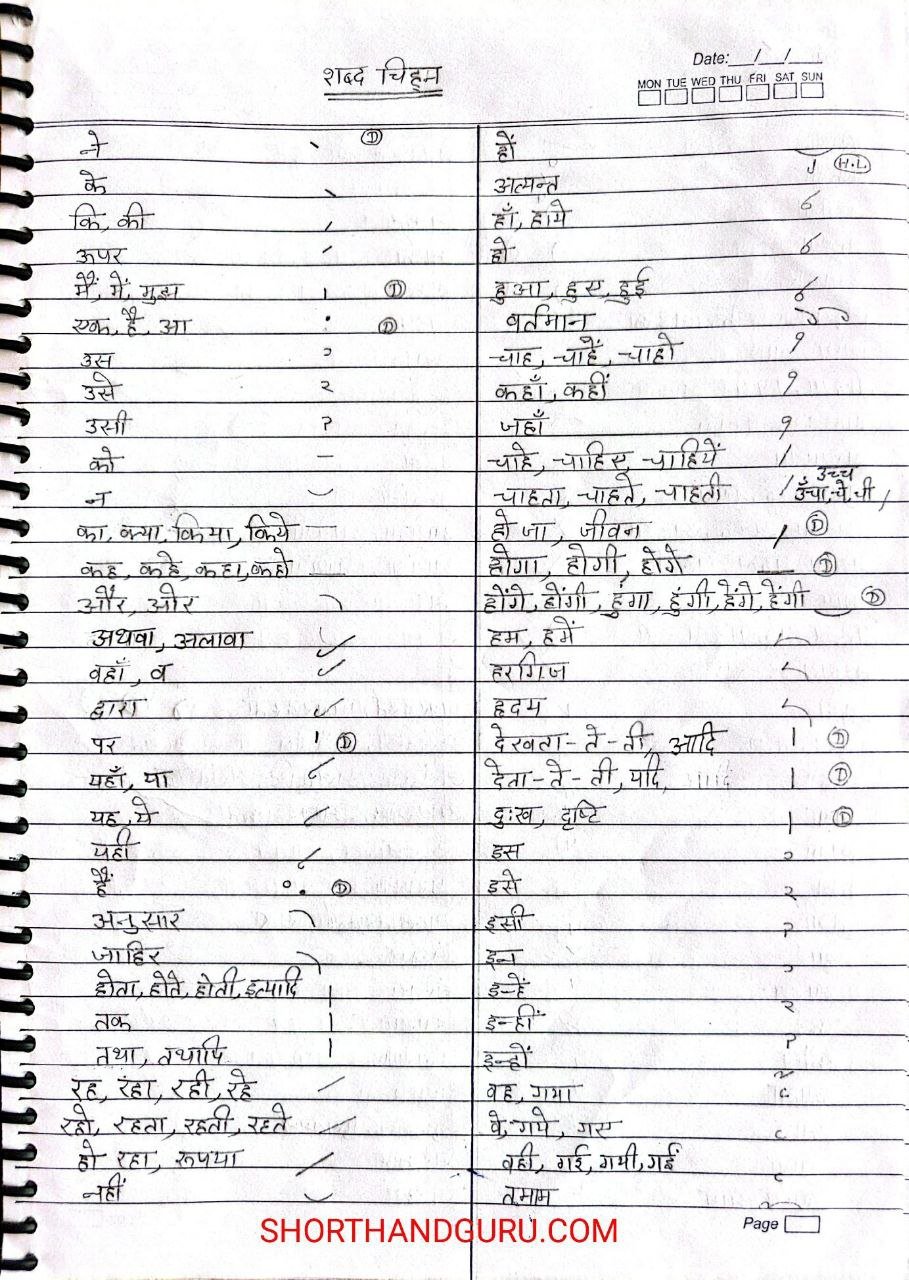 शब्द चिह्न
Date: __/__/__
MON TUE WED THU FRI SAT SUN
ने D
के
कि, की
ऊपर
मैं, में, मुझ D
एक, है, आ D
उस
उसे
उसी
को
न
का, क्या, किया, किये
कह, कहे, कहा, कहो
और, ओर
अथवा, अलावा
वहाँ, व
द्वारा
पर D
यहाँ, या
यह, ये
यही
हैं D
अनुसार
जाहिर
होता, होते, होती, इत्यादि
तक
तथा, तथापि
रह, रहा, रही, रहे
रहो, रहता, रहती, रहते
हो रहा, रूपया
नहीं
हों
अत्यन्त H.L
हाँ,
हो
हुआ, हुए, हुई
वर्तमान
चाह, चाहें, चाहो
कहाँ, कहीं
जहाँ
चाहे, चाहिए, चाहियें
चाहता, चाहते, चाहती उच्च ऊँचा, चे, ची
हो जा, जीवन D
होगा, होगी, होगे D
होंगे, होंगी, हुंगा, हुंगी, हेंगे, हेंगी D
हम, हमें
हरगिज
हृदम
देखता-ते-ती, आदि D
देता-ते-ती, यदि, D
दुःख, दृष्टि D
इस
इसे
इसी
इन
इन्हें
इन्हीं
इन्हों
वह, गया
वे, गये, गए
वही, गई, गयी, गईं
तमाम
Page
SHORTHANDGURU.COM